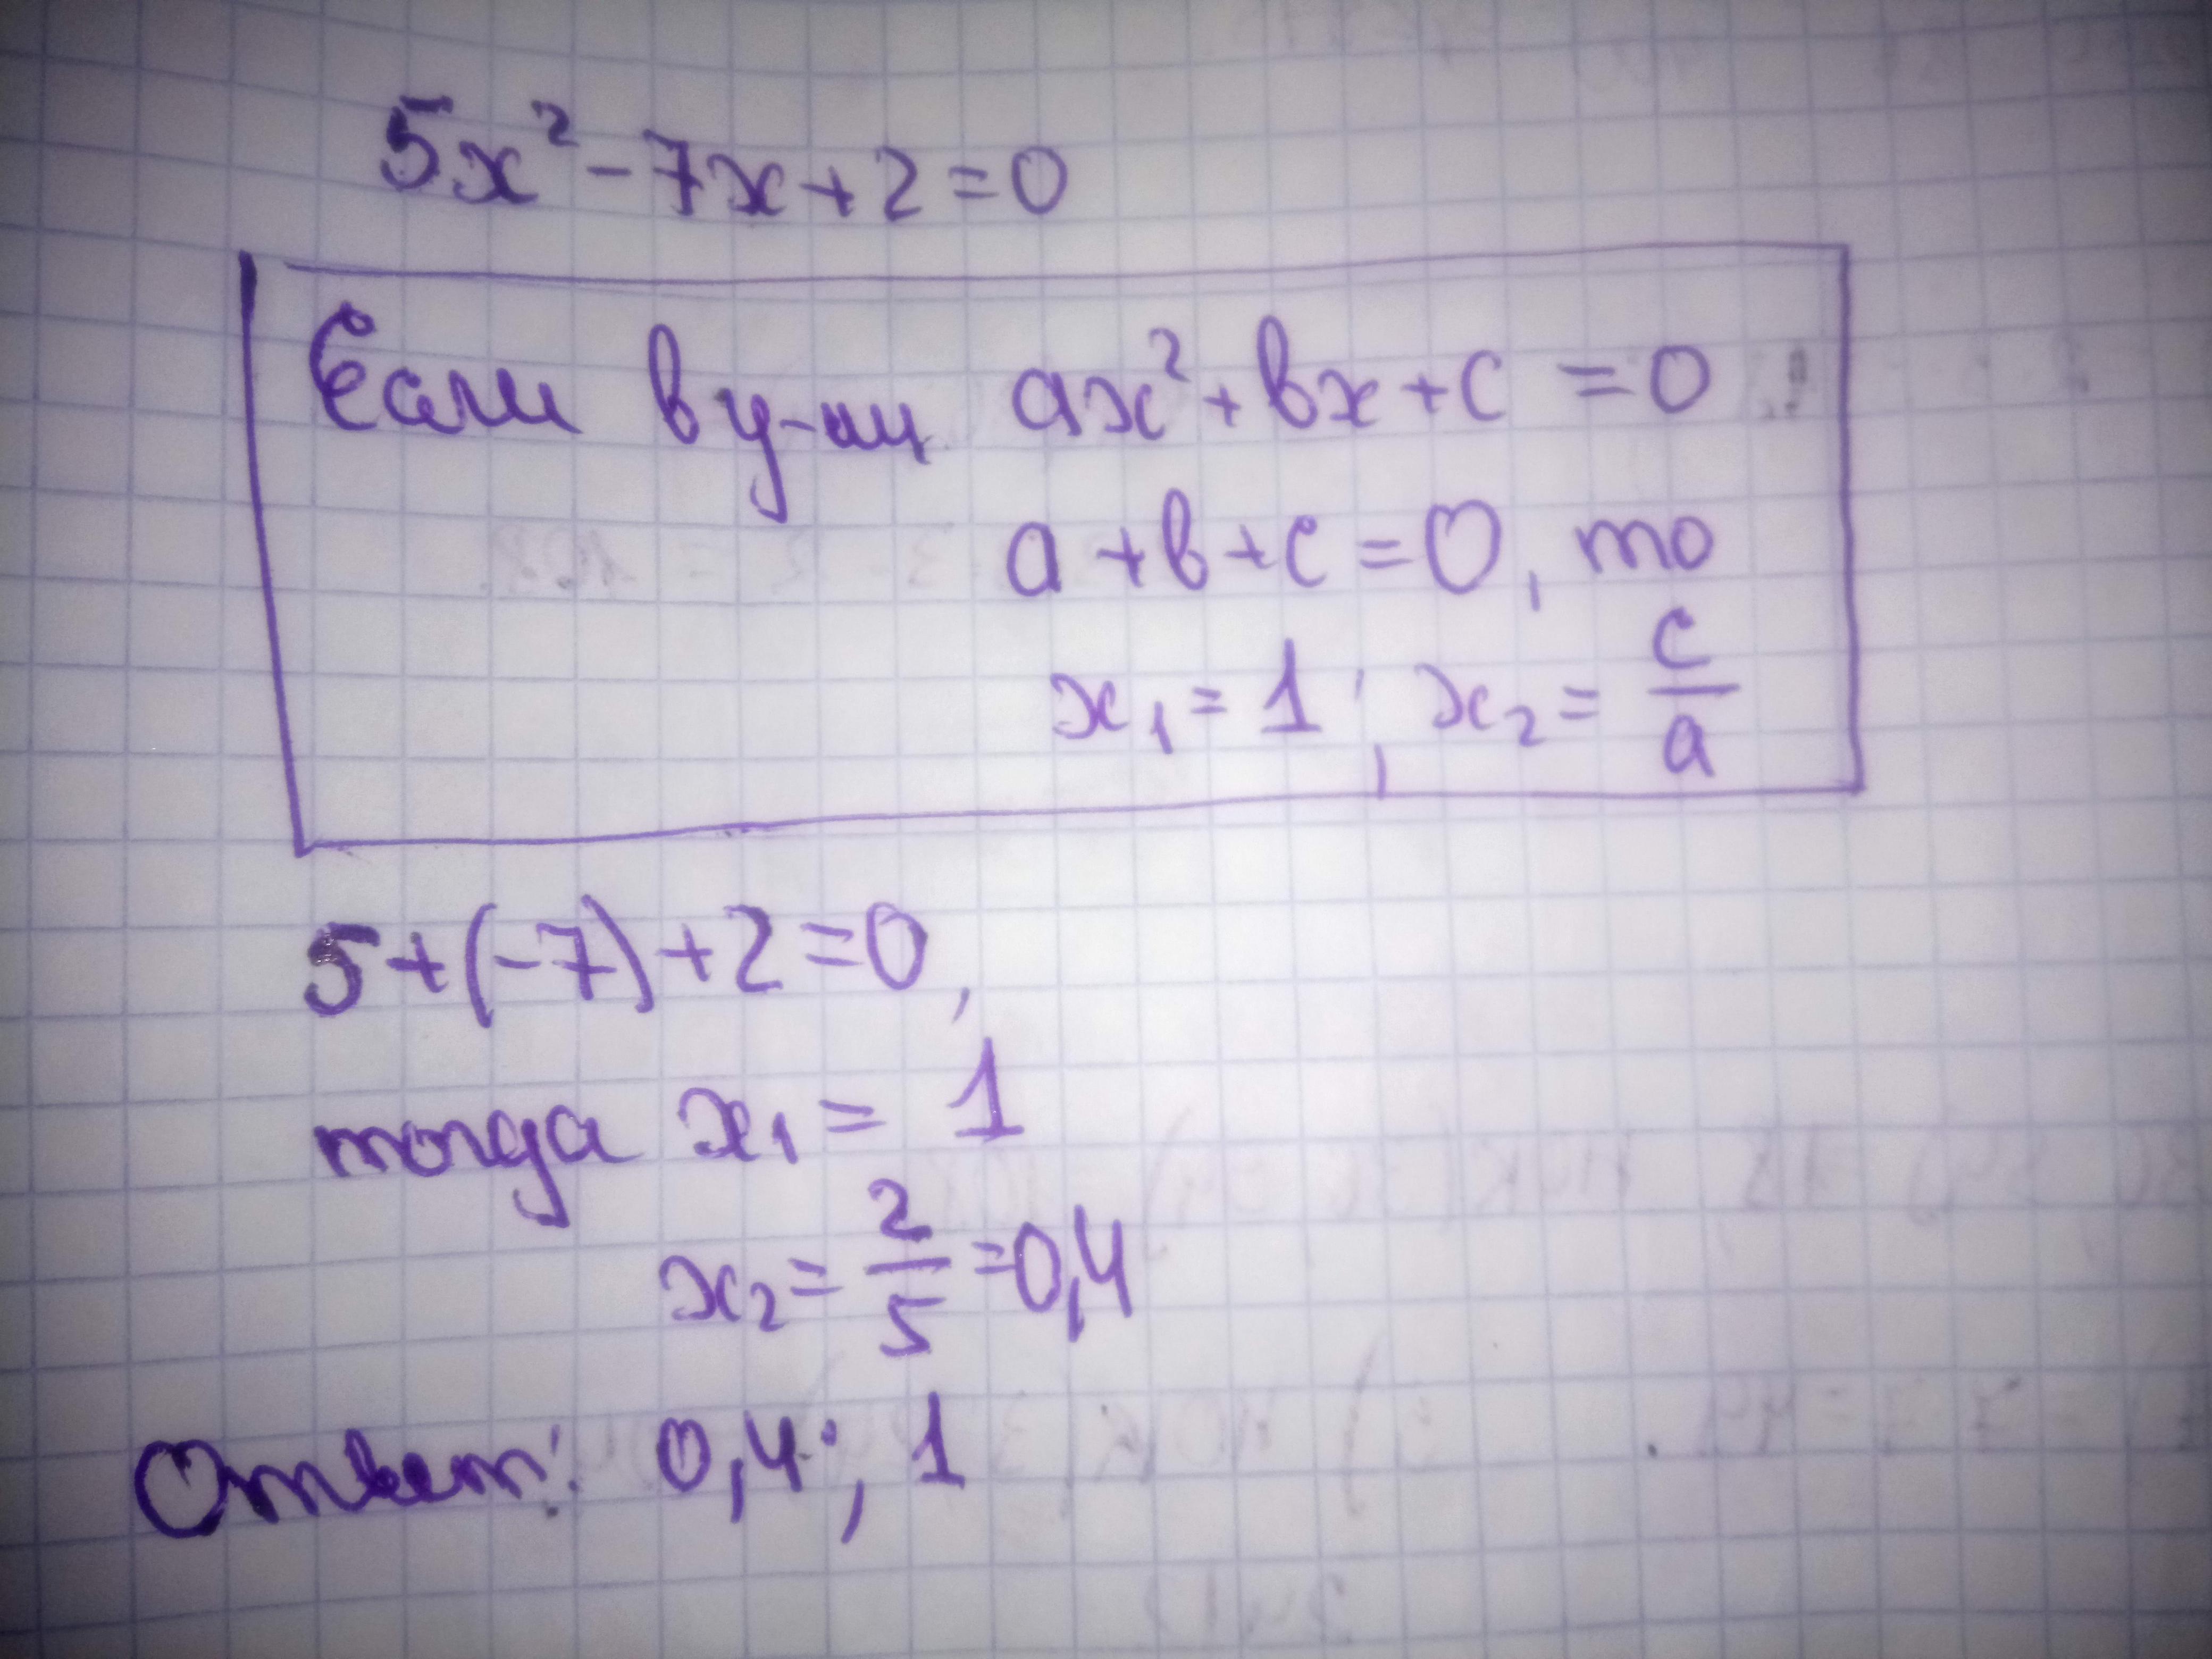 5x² - 7x + 2 = 0
Если в у-ии ax² + вx + c = 0
a + в + c = 0, то
x₁ = 1; x₂ = c/a
5 + (-7) + 2 = 0,
тогда x₁ = 1
x₂ = 2/5 = 0,4
Ответ: 0,4; 1